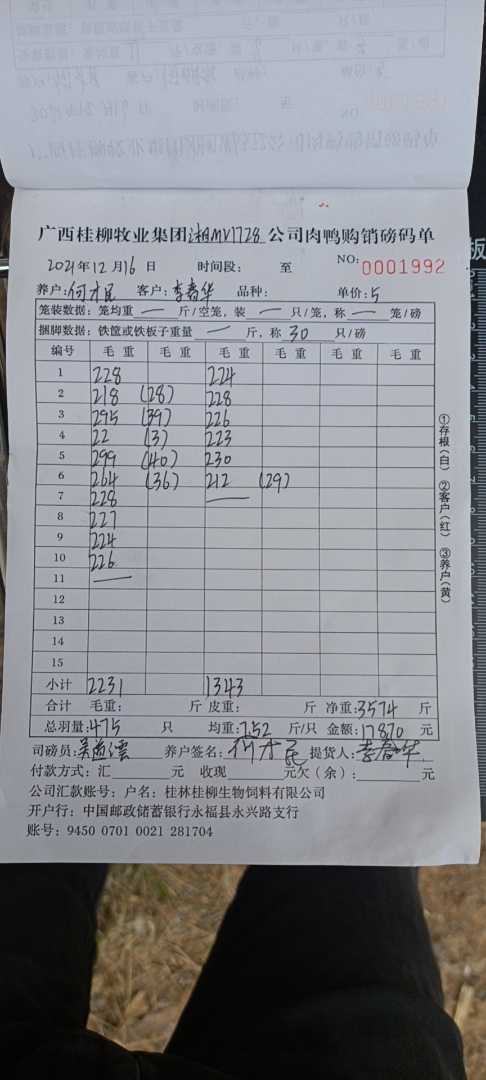 广西桂柳牧业集团湘MV1728公司肉鸭购销磅码单
2021年12月16日 时间段: 至 NO: 0001992
养户:何才民 客户:李春华 品种: 单价:5
笼装数据: 笼均重 — 斤/空笼, 装 — 只/笼, 称 — 笼/磅
捆脚数据: 铁筐或铁板子重量 — 斤, 称 30 只/磅
编号 毛重 毛重 毛重 毛重 毛重 毛重
1 228 224
2 218 (28) 228
3 295 (39) 226
4 22 (3) 223
5 299 (40) 230
6 264 (36) 212 (29)
7 228 —
8 227
9 224
10 226
11 —
12
13
14
15
小计 2231 1343
合计 毛重: 斤 皮重: 斤 净重:3574 斤
总羽量:475 只 均重:7.52 斤/只 金额:17870 元
司磅员: 养户签名:何才民 提货人:李春华
付款方式: 汇 元 收现 元欠(余): 元
公司汇款账号: 户名: 桂林桂柳生物饲料有限公司
开户行: 中国邮政储蓄银行永福县永兴路支行
账号: 9450 0701 0021 281704
①存根(白) ②客户(红) ③养户(黄)